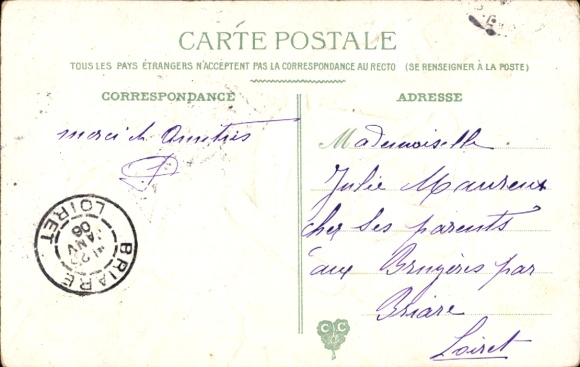 CARTE POSTALE
TOUS LES PAYS ÉTRANGERS N'ACCEPTENT PAS LA CORRESPONDANCE AU RECTO (SE RENSEIGNER À LA POSTE)
CORRESPONDANCE
merci
ADRESSE
Mademoiselle
Julie
chez ses parents
aux Bruyères par
Briare
Loiret
BRIARE
LOIRET
JANV
06
C C